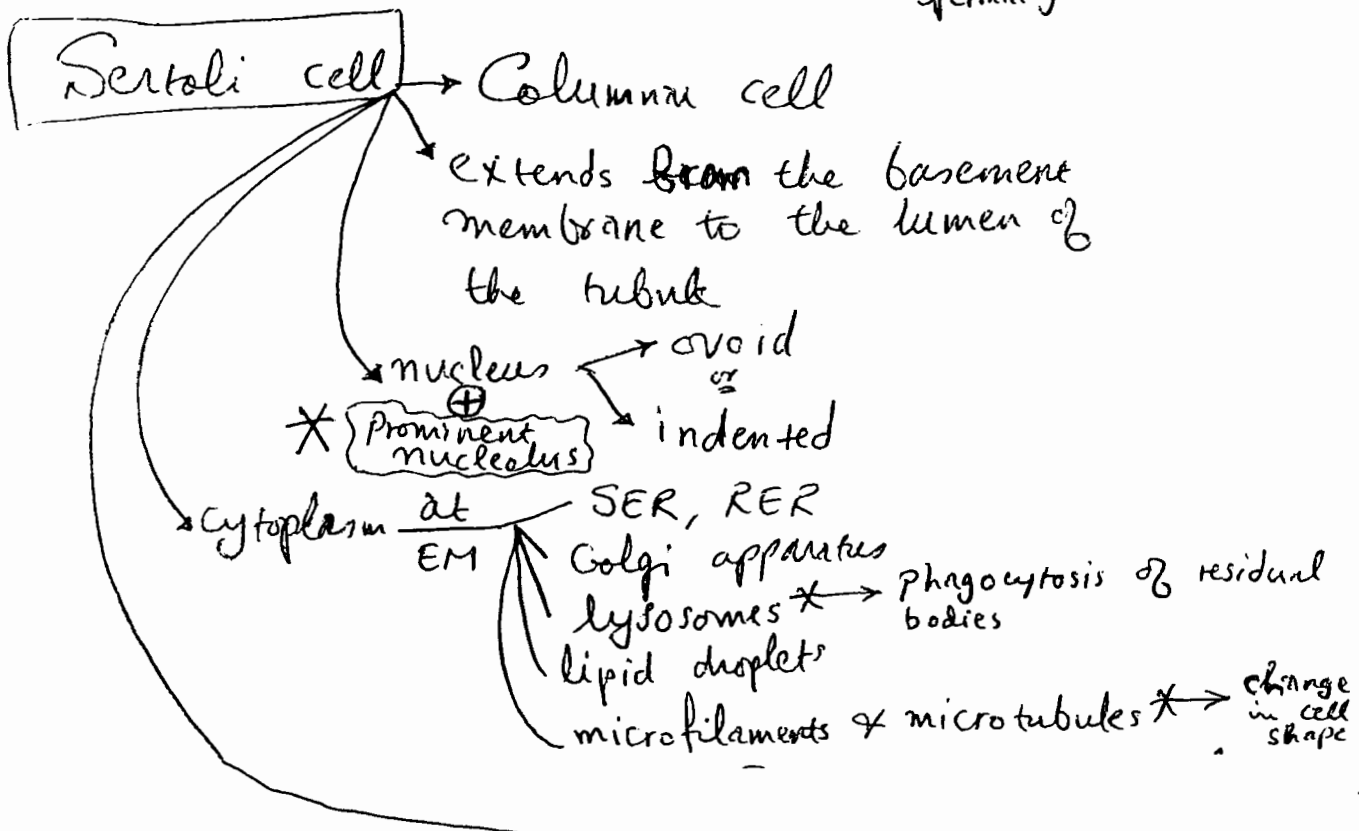 Sertoli cell → Columnar cell
extends from the basement
membrane to the lumen of
the tubule
nucleus → ovoid
or
⊕ → indented
* Prominent
nucleolus
Cytoplasm at EM SER, RER
Golgi apparatus
lysosomes * → phagocytosis of residual
bodies
lipid droplets
microfilaments & microtubules * → change
in cell
shape